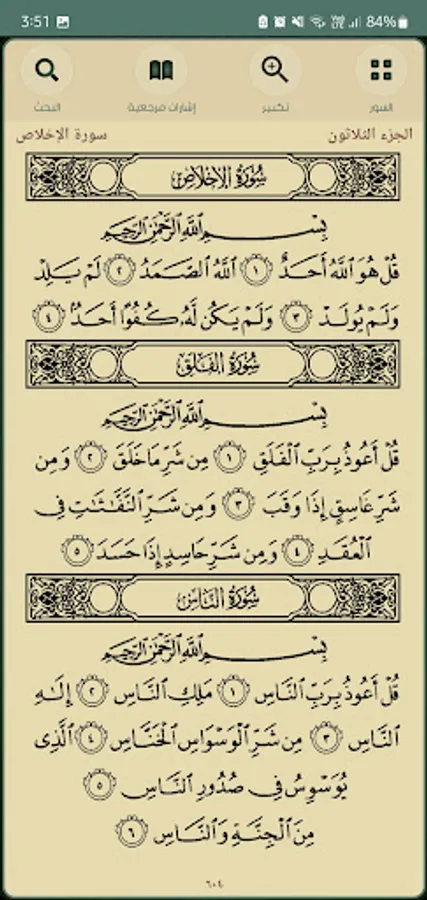 3:51 84%
السور تكبير إشارات مرجعية البحث
الجزء الثلاثون سورة الإخلاص
سُورَةُ الإِخْلَاصِ
بِسْمِ اللَّهِ الرَّحْمَٰنِ الرَّحِيمِ
قُلْ هُوَ اللَّهُ أَحَدٌ ١ اللَّهُ الصَّمَدُ ٢ لَمْ يَلِدْ
وَلَمْ يُولَدْ ٣ وَلَمْ يَكُن لَّهُ كُفُوًا أَحَدٌ ٤
سُورَةُ الْفَلَقِ
بِسْمِ اللَّهِ الرَّحْمَٰنِ الرَّحِيمِ
قُلْ أَعُوذُ بِرَبِّ الْفَلَقِ ١ مِن شَرِّ مَا خَلَقَ ٢ وَمِن
شَرِّ غَاسِقٍ إِذَا وَقَبَ ٣ وَمِن شَرِّ النَّفَّاثَاتِ فِي
الْعُقَدِ ٤ وَمِن شَرِّ حَاسِدٍ إِذَا حَسَدَ ٥
سُورَةُ النَّاسِ
بِسْمِ اللَّهِ الرَّحْمَٰنِ الرَّحِيمِ
قُلْ أَعُوذُ بِرَبِّ النَّاسِ ١ مَلِكِ النَّاسِ ٢ إِلَٰهِ
النَّاسِ ٣ مِن شَرِّ الْوَسْوَاسِ الْخَنَّاسِ ٤ الَّذِي
يُوَسْوِسُ فِي صُدُورِ النَّاسِ ٥
مِنَ الْجِنَّةِ وَالنَّاسِ ٦
٦٠٤